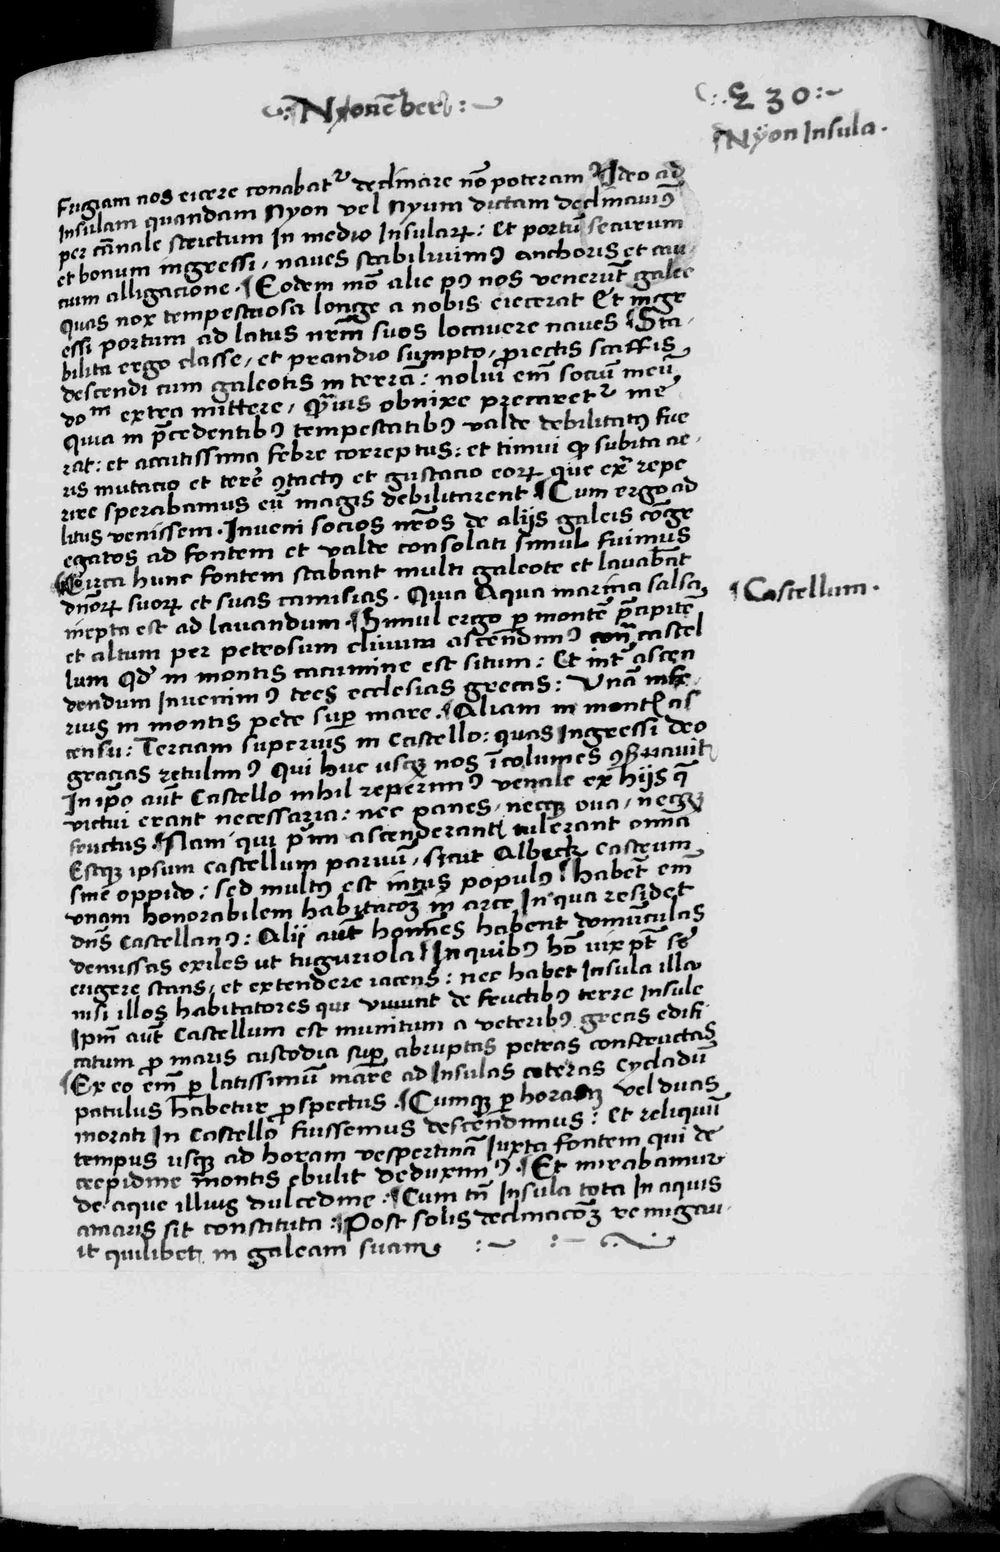 Nouēber
230
Nÿon Insula.
Fugiam nos eicere conabat᷑ declinare nō poteram Ideo ad
Insulam quandam Nyon vel Nyum dictam declinauimꝰ
per cānale strictum In medio Insularꝝ: Et portū securum
et bonum ingressi, naues stabiliuimꝰ anchoris et cau
cium alligacione. Eodem mō alie pꝰ nos venerūt galee
quas nox tempestuosa longe a nobis eiecerat Et ingre
essi portum ad latus nr̄m suos locauere naues Sta
bilita ergo classe, et prandio sumpto, proiectis scaffis
descendi cum galeotis in terrā: nolui em̄ sociū meū
doᵐ extra mittere, Qͣuis obnixe precaret᷑ me
Quia in p̄cedentibꝰ tempestatibꝰ valde debilitatꝰ fue
rat: et acutissima febre correptus: et timui qͣ subita ae
ris mutacio et terre ꝯtactꝰ et gustacio eorꝝ que exͣ repe
rire sperabamus eū magis debilitarent. Cum ergo ad
litus venissem. Inueni socios nr̄os de alijs galeis cōgre
egatos ad fontem et valde consolati simul fuimus
Circa hunc fontem stabant multi galeote et lauabāt
dn̄orꝝ suorꝝ et suas camisias. Quia Aqua marina salsa
inepta est ad lauandum. Simul ergo ꝑ montē p̄cipitē
et altum per petrosum cliuum ascendimꝰ contͣ castel
lum Qd̓ in montis cacumine est situm: Et intͣ ascen
dendum Inuenimꝰ tres ecclesias grecas: Vnā infe
rius in montis pede suꝑ mare. Aliam in montꝭ as
censu: Terciam superius in Castello: quas Ingressi deo
gracias retulimꝰ Qui huc usqꝫ nos īcolumes ꝯseruauit
In ip̄o aūt Castello nihil reperimꝰ venale ex hijs q̄
victui erant necessaria: nec panes, necqꝫ oua, neqꝫ
fructus. Nam qui p̄m ascenderant, tulerant omnia
Estqꝫ ipsum castellum paruū, sicut Albeck castrum
sine oppido: sed multꝰ est intus populꝰ: habet em̄
vnam honorabilem habitacōꝫ in arce In qua residet
dn̄s Castellanꝰ: Alij aūt homines habent domunculas
demissas exiles ut tuguriola In quibꝰ hō uix pt̄ se
erigere stans, et extendere iacens: nec habet Insula illa
nisi illos habitatores qui viuunt de fructibꝰ terre Insule
Ipm̄ aūt Castellum est munitum a veteribꝰ grecis edifi
catum ꝓ maris custodia suꝑ abruptas petras constructas
Ex eo em̄ ꝑ latissimū mare ad Insulas ceteras cycladū
patulus habetur ꝓspectus. Cumqꝫ ꝑ horam vel duas
morati In Castello fuissemus descendimus: Et reliquū
tempus usqꝫ ad horam vespertinā Iuxta fontem qui de
crepidine montis ebulit deduximꝰ. Et mirabamur
de aque illius dulcedine. Cum tn̄ Insula tota In aquis
amaris sit constituta: Post solis declinacōꝫ remigau
it quilibet in galeam suam
Castellum.